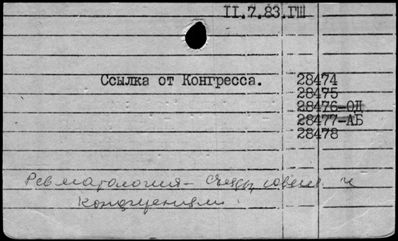 II.7.83.ГШ
Ссылка от Конгресса. 28474
28475
28476-ОП
28477-АБ
28478
Ревматология - съезды, и